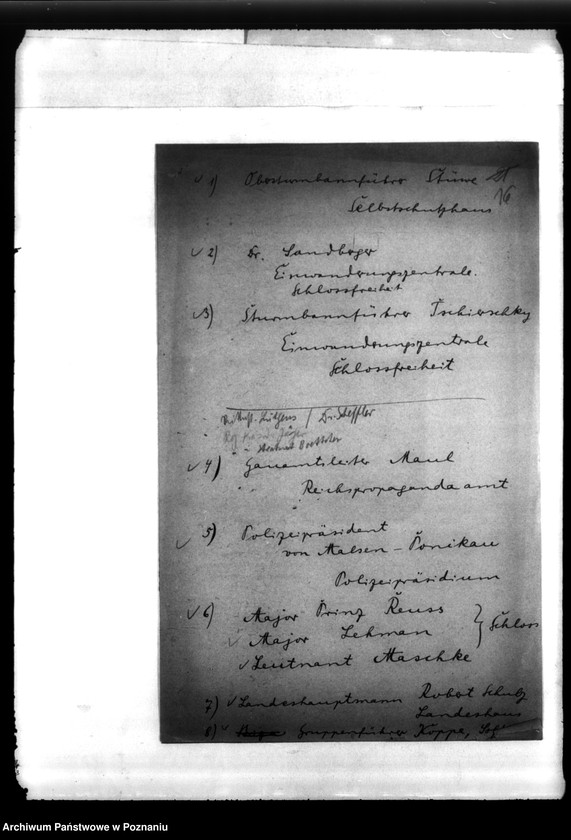 √ 1) Obersturmbannführer Stüwe
16
Selbstschutzhaus
√ 2) Dr. Sandberger
Einwanderungszentrale.
Schlossfreiheit
√ 3) Sturmbannführer Tschierschky
Einwandrungszentrale
Schlossfreiheit
/ Dr. Steffler
√ 4) Gauamtsleiter Maul
Reichspropagandaamt
√ 5) Polizeipräsident
von Malsen-Ponikau
Polizeipräsidium
√ 6) Major Prinz Reuss
√ Major Lehman } Schloss
√ Leutnant Maschke
7) √ Landeshauptmann Robert Schulz
Landeshaus
8) √ Gruppenführer Koppe,
Archiwum Państwowe w Poznaniu